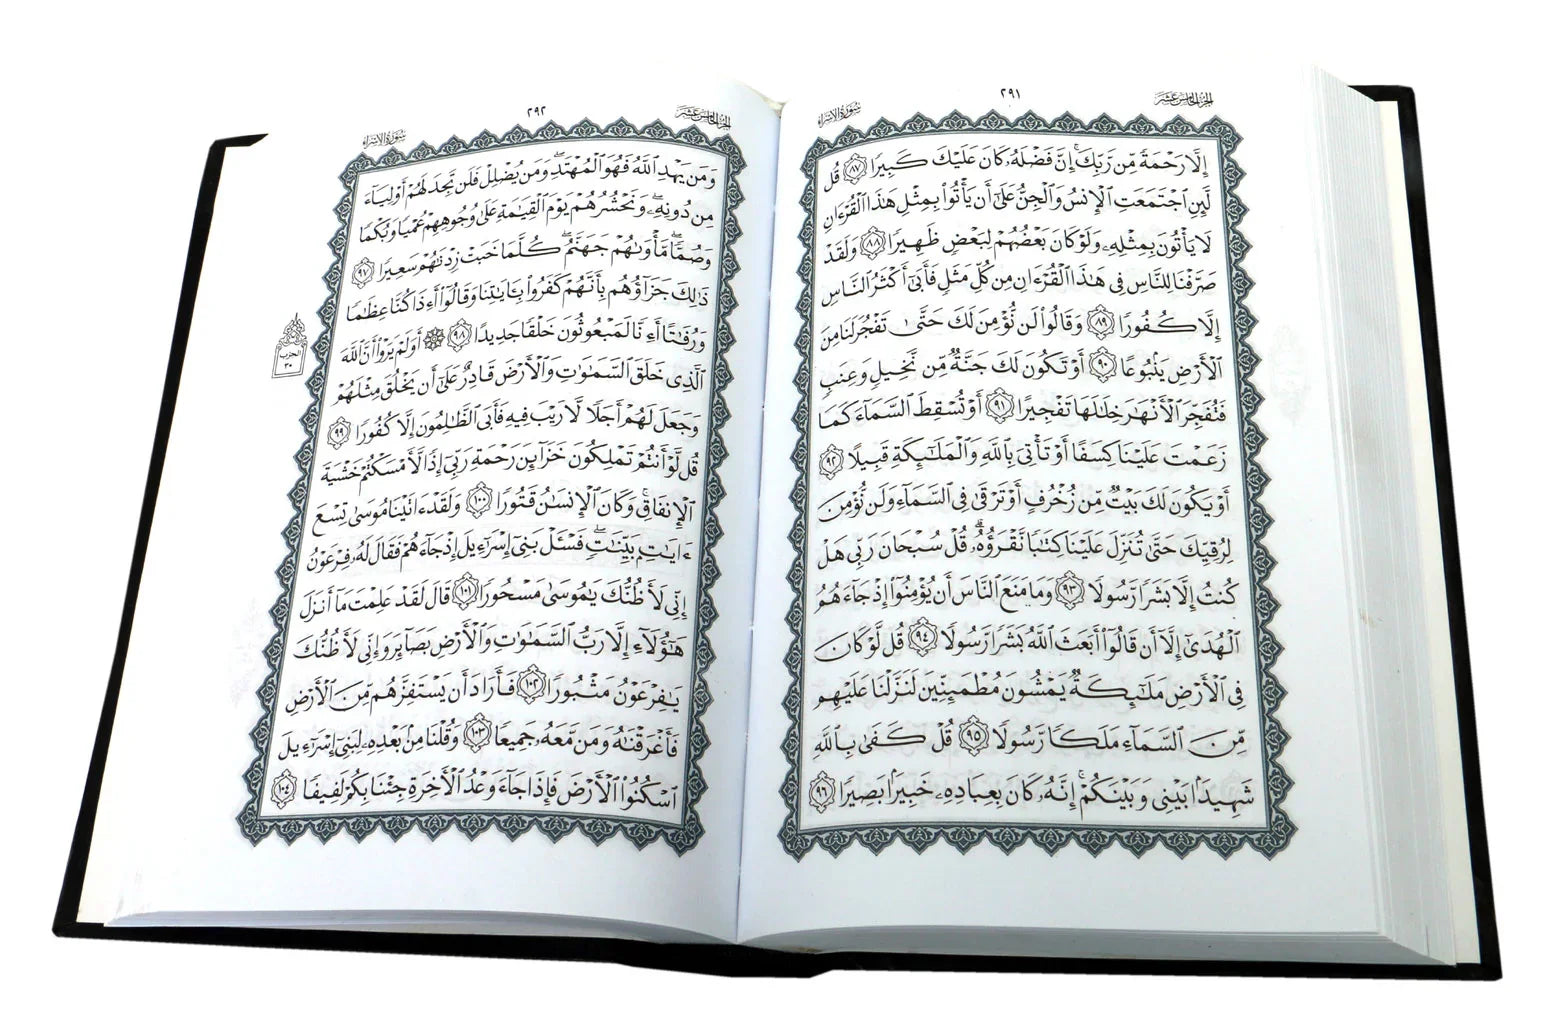 الجزء الخامس عشر
٢٩١
سورة الإسراء
إِلَّا رَحْمَةً مِّن رَّبِّكَ ۚ إِنَّ فَضْلَهُۥ كَانَ عَلَيْكَ كَبِيرًا ٨٧ قُل
لَّئِنِ ٱجْتَمَعَتِ ٱلْإِنسُ وَٱلْجِنُّ عَلَىٰٓ أَن يَأْتُوا۟ بِمِثْلِ هَٰذَا ٱلْقُرْءَانِ
لَا يَأْتُونَ بِمِثْلِهِۦ وَلَوْ كَانَ بَعْضُهُمْ لِبَعْضٍ ظَهِيرًا ٨٨ وَلَقَدْ
صَرَّفْنَا لِلنَّاسِ فِى هَٰذَا ٱلْقُرْءَانِ مِن كُلِّ مَثَلٍ فَأَبَىٰٓ أَكْثَرُ ٱلنَّاسِ
إِلَّا كُفُورًا ٨٩ وَقَالُوا۟ لَن نُّؤْمِنَ لَكَ حَتَّىٰ تَفْجُرَ لَنَا مِنَ
ٱلْأَرْضِ يَنۢبُوعًا ٩٠ أَوْ تَكُونَ لَكَ جَنَّةٌ مِّن نَّخِيلٍ وَعِنَبٍ
فَتُفَجِّرَ ٱلْأَنْهَٰرَ خِلَٰلَهَا تَفْجِيرًا ٩١ أَوْ تُسْقِطَ ٱلسَّمَآءَ كَمَا
زَعَمْتَ عَلَيْنَا كِسَفًا أَوْ تَأْتِىَ بِٱللَّهِ وَٱلْمَلَٰٓئِكَةِ قَبِيلًا ٩٢
أَوْ يَكُونَ لَكَ بَيْتٌ مِّن زُخْرُفٍ أَوْ تَرْقَىٰ فِى ٱلسَّمَآءِ وَلَن نُّؤْمِنَ
لِرُقِيِّكَ حَتَّىٰ تُنَزِّلَ عَلَيْنَا كِتَٰبًا نَّقْرَؤُهُۥ ۗ قُلْ سُبْحَانَ رَبِّى هَلْ
كُنتُ إِلَّا بَشَرًا رَّسُولًا ٩٣ وَمَا مَنَعَ ٱلنَّاسَ أَن يُؤْمِنُوٓا۟ إِذْ جَآءَهُمُ
ٱلْهُدَىٰٓ إِلَّآ أَن قَالُوٓا۟ أَبَعَثَ ٱللَّهُ بَشَرًا رَّسُولًا ٩٤ قُل لَّوْ كَانَ
فِى ٱلْأَرْضِ مَلَٰٓئِكَةٌ يَمْشُونَ مُطْمَئِنِّينَ لَنَزَّلْنَا عَلَيْهِم
مِّنَ ٱلسَّمَآءِ مَلَكًا رَّسُولًا ٩٥ قُلْ كَفَىٰ بِٱللَّهِ
شَهِيدًۢا بَيْنِى وَبَيْنَكُمْ ۚ إِنَّهُۥ كَانَ بِعِبَادِهِۦ خَبِيرًۢا بَصِيرًا ٩٦
الجزء الخامس عشر
٢٩٢
سورة الإسراء
وَمَن يَهْدِ ٱللَّهُ فَهُوَ ٱلْمُهْتَدِ ۖ وَمَن يُضْلِلْ فَلَن تَجِدَ لَهُمْ أَوْلِيَآءَ
مِن دُونِهِۦ ۖ وَنَحْشُرُهُمْ يَوْمَ ٱلْقِيَٰمَةِ عَلَىٰ وُجُوهِهِمْ عُمْيًا وَبُكْمًا
وَصُمًّا ۖ مَّأْوَىٰهُمْ جَهَنَّمُ ۖ كُلَّمَا خَبَتْ زِدْنَٰهُمْ سَعِيرًا ٩٧
ذَٰلِكَ جَزَآؤُهُم بِأَنَّهُمْ كَفَرُوا۟ بِـَٔايَٰتِنَا وَقَالُوٓا۟ أَءِذَا كُنَّا عِظَٰمًا
وَرُفَٰتًا أَءِنَّا لَمَبْعُوثُونَ خَلْقًا جَدِيدًا ٩٨ ۞ أَوَلَمْ يَرَوْا۟ أَنَّ ٱللَّهَ
ٱلَّذِى خَلَقَ ٱلسَّمَٰوَٰتِ وَٱلْأَرْضَ قَادِرٌ عَلَىٰٓ أَن يَخْلُقَ مِثْلَهُمْ
وَجَعَلَ لَهُمْ أَجَلًا لَّا رَيْبَ فِيهِ فَأَبَى ٱلظَّٰلِمُونَ إِلَّا كُفُورًا ٩٩
قُل لَّوْ أَنتُمْ تَمْلِكُونَ خَزَآئِنَ رَحْمَةِ رَبِّىٓ إِذًا لَّأَمْسَكْتُمْ خَشْيَةَ
ٱلْإِنفَاقِ ۚ وَكَانَ ٱلْإِنسَٰنُ قَتُورًا ١٠٠ وَلَقَدْ ءَاتَيْنَا مُوسَىٰ تِسْعَ
ءَايَٰتٍۭ بَيِّنَٰتٍ ۖ فَسْـَٔلْ بَنِىٓ إِسْرَٰٓءِيلَ إِذْ جَآءَهُمْ فَقَالَ لَهُۥ فِرْعَوْنُ
إِنِّى لَأَظُنُّكَ يَٰمُوسَىٰ مَسْحُورًا ١٠١ قَالَ لَقَدْ عَلِمْتَ مَآ أَنزَلَ
هَٰٓؤُلَآءِ إِلَّا رَبُّ ٱلسَّمَٰوَٰتِ وَٱلْأَرْضِ بَصَآئِرَ وَإِنِّى لَأَظُنُّكَ
يَٰفِرْعَوْنُ مَثْبُورًا ١٠٢ فَأَرَادَ أَن يَسْتَفِزَّهُم مِّنَ ٱلْأَرْضِ
فَأَغْرَقْنَٰهُ وَمَن مَّعَهُۥ جَمِيعًا ١٠٣ وَقُلْنَا مِنۢ بَعْدِهِۦ لِبَنِىٓ إِسْرَٰٓءِيلَ
ٱسْكُنُوا۟ ٱلْأَرْضَ فَإِذَا جَآءَ وَعْدُ ٱلْءَاخِرَةِ جِئْنَا بِكُمْ لَفِيفًا ١٠٤
الحزب
٣٠